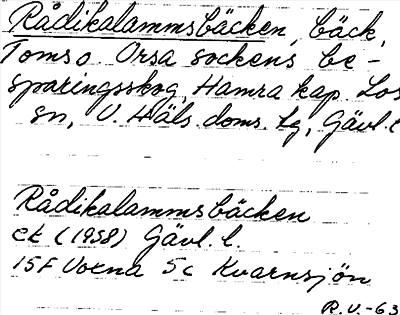 Rådikalammsbäcken, bäck,
Toms o Orsa sockens be-
sparingsskog, Hamra kap. Los
sn, V. Häls. doms. tg, Gävl. l
Rådikalammsbäcken
ek (1958) Gävl. l.
15F Voxna 5c Kvarnsjön
R.V.-63